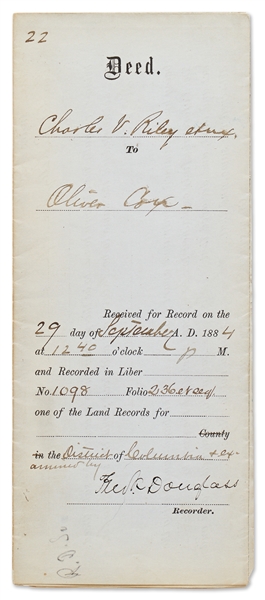 22
Deed.
Charles V. Riley et ux.
To
Oliver Cox
Received for Record on the
29 day of September A. D. 1884
at 12 40 o'clock P M.
and Recorded in Liber
No. 1098 Folio 236 et seq
one of the Land Records for
County
in the District of Columbia & ex-
amined by
Fredk Douglass
Recorder.